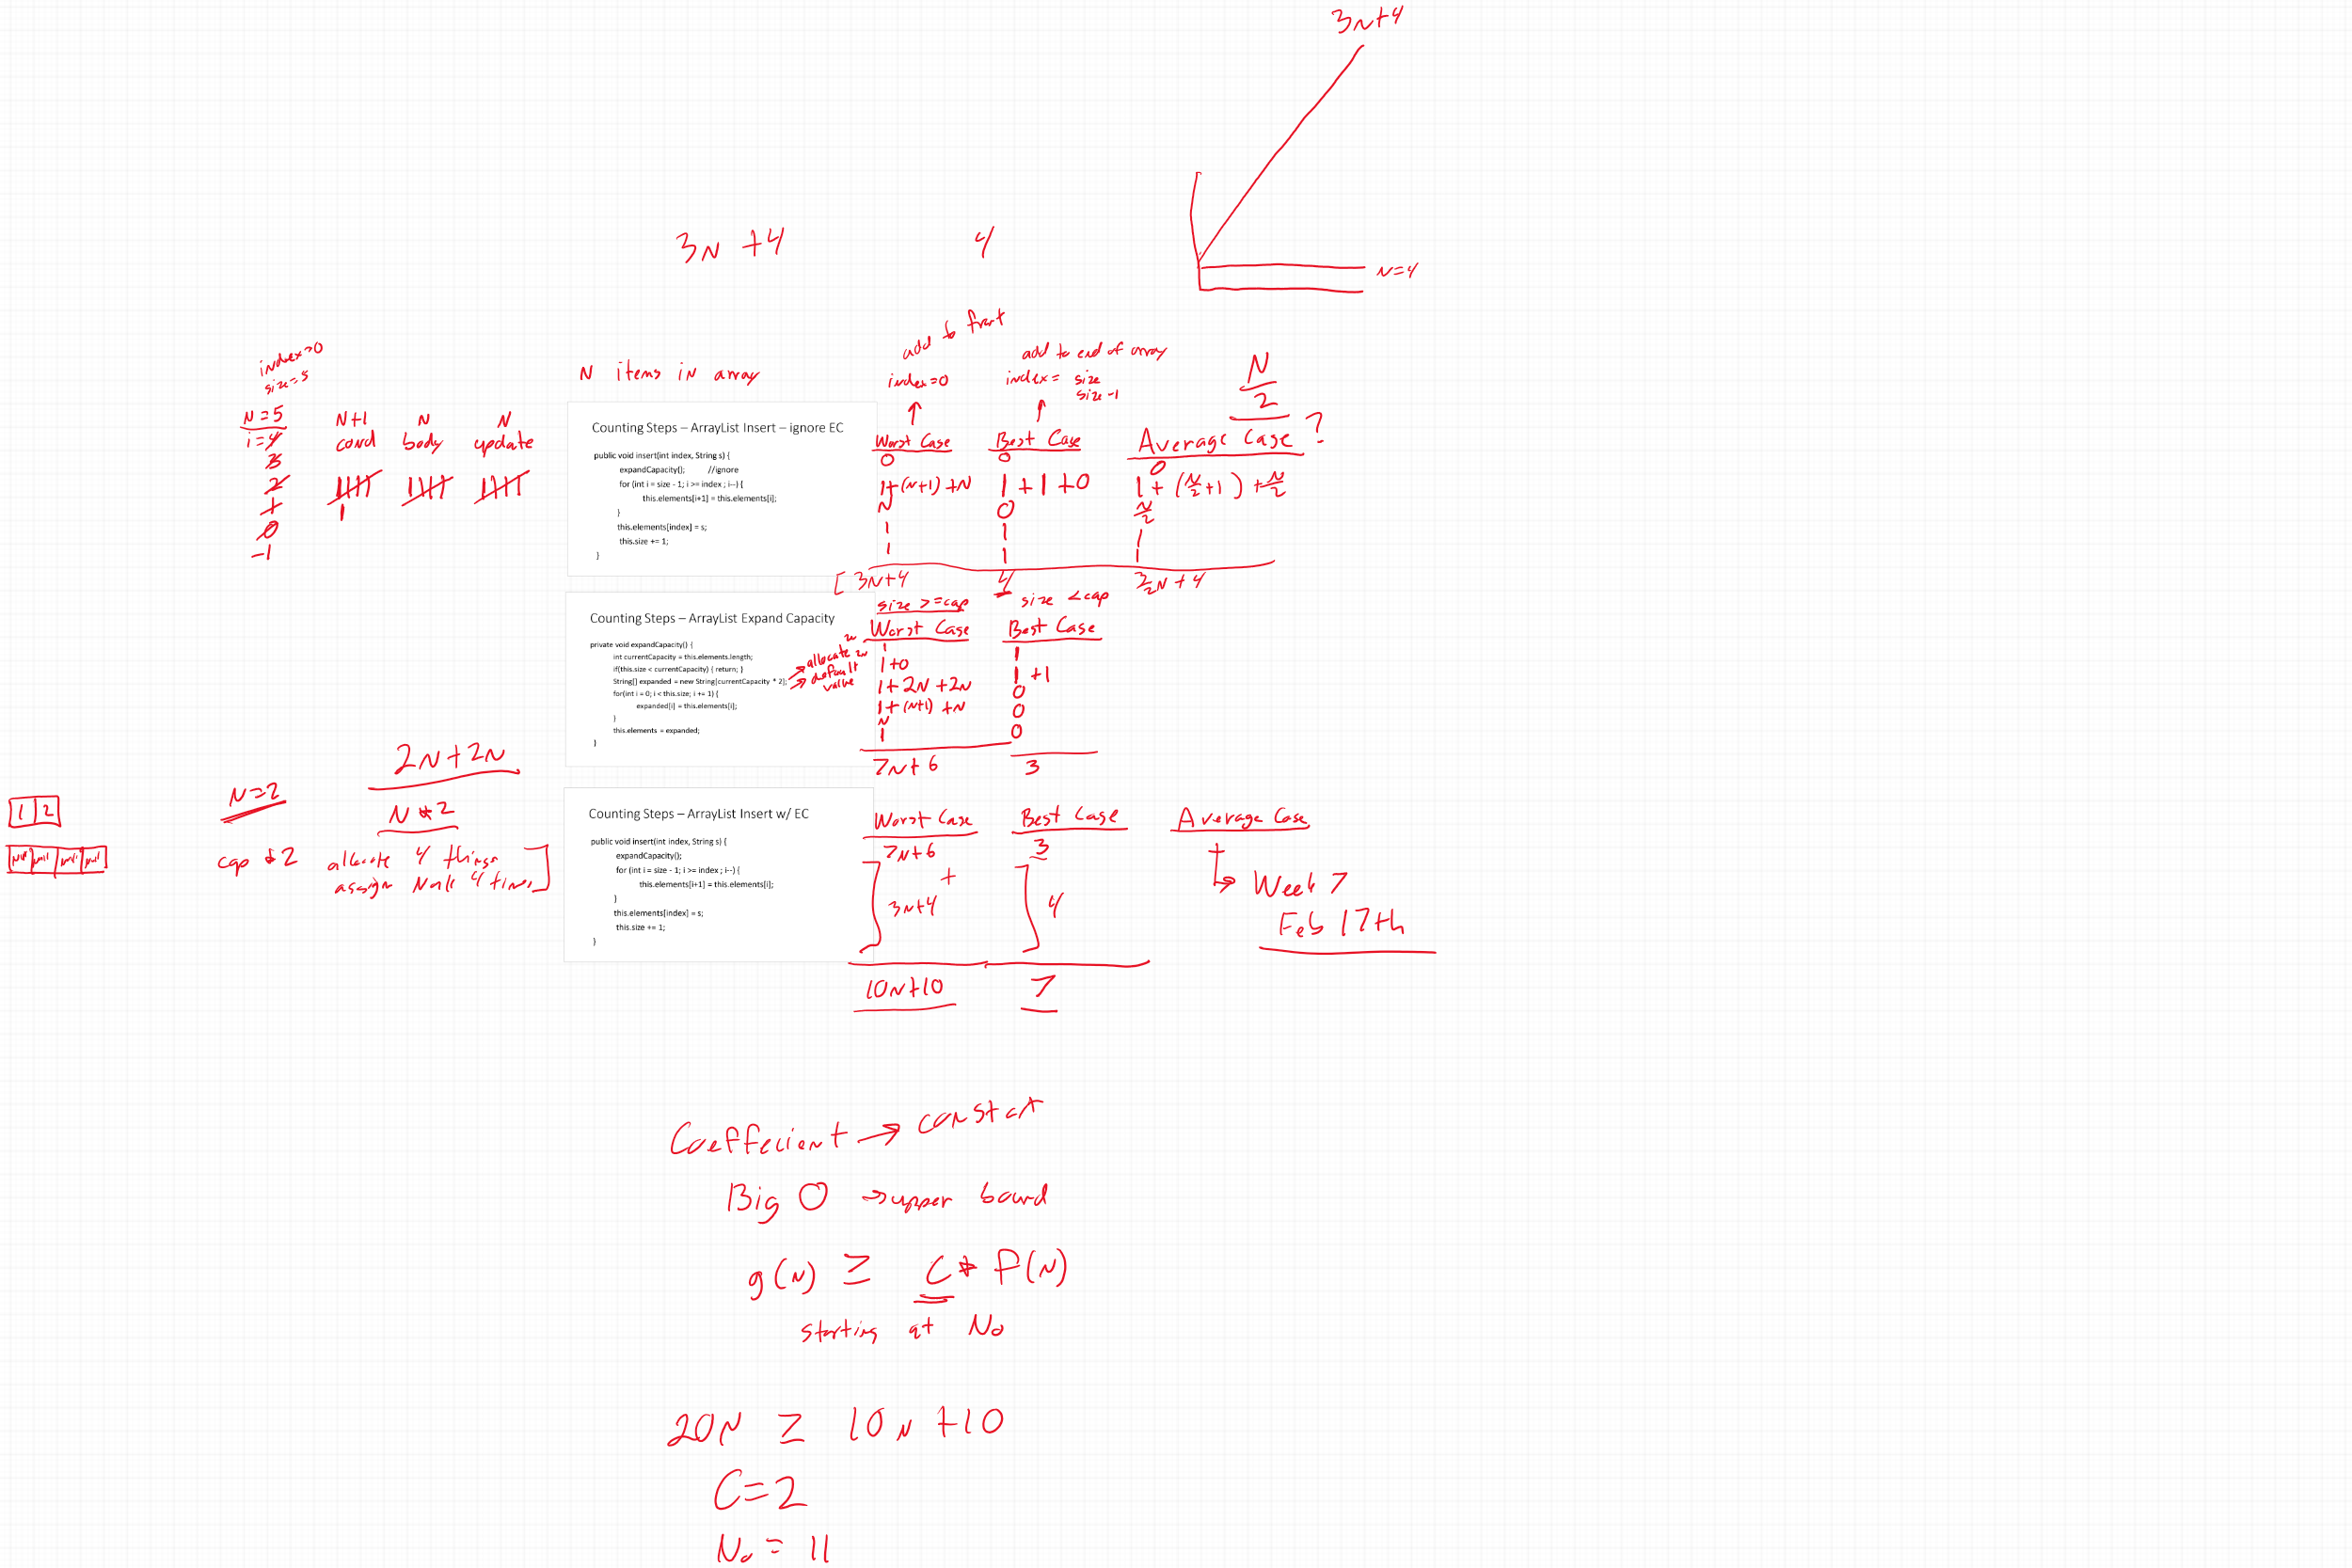 3N+4
3N +4
4
N=4
index=0
size=5
N=5
i=4
3
2
1
0
-1
N+1
cond
N
body
N
update
1
N items in array
add to front
index=0
add to end of array
index= size
size-1
N
2
Counting Steps – ArrayList Insert – ignore EC
public void insert(int index, String s) {
expandCapacity(); //ignore
for (int i = size - 1; i >= index ; i--) {
this.elements[i+1] = this.elements[i];
}
this.elements[index] = s;
this.size += 1;
}
Worst Case
0
1+(N+1)+N
N
1
1
[3N+4
Best Case
0
1+1+0
0
1
1
4
Average Case ?
0
1+(N/2+1)+N/2
N/2
1
1
3/2N+4
Counting Steps – ArrayList Expand Capacity
private void expandCapacity() {
int currentCapacity = this.elements.length;
if(this.size < currentCapacity) { return; }
String[] expanded = new String[currentCapacity * 2];
for(int i = 0; i < this.size; i += 1) {
expanded[i] = this.elements[i];
}
this.elements = expanded;
}
2N
allocate 2N
default
value
size >=cap
Worst Case
1
1+0
1+2N+2N
1+(N+1)+N
N
1
7N+6
size <cap
Best Case
1
1+1
0
0
0
3
1 2
null null null null
N=2
cap *2
2N+2N
N*2
allocate 4 things
assign Null 4 times
Counting Steps – ArrayList Insert w/ EC
public void insert(int index, String s) {
expandCapacity();
for (int i = size - 1; i >= index ; i--) {
this.elements[i+1] = this.elements[i];
}
this.elements[index] = s;
this.size += 1;
}
Worst Case
7N+6
+
3N+4
10N+10
Best Case
3
4
7
Average Case
→ Week 7
Feb 17th
Coeffecient → constant
Big O → upper bound
g(N) ≥ C * F(N)
starting at No
20N ≥ 10N+10
C=2
No = 11